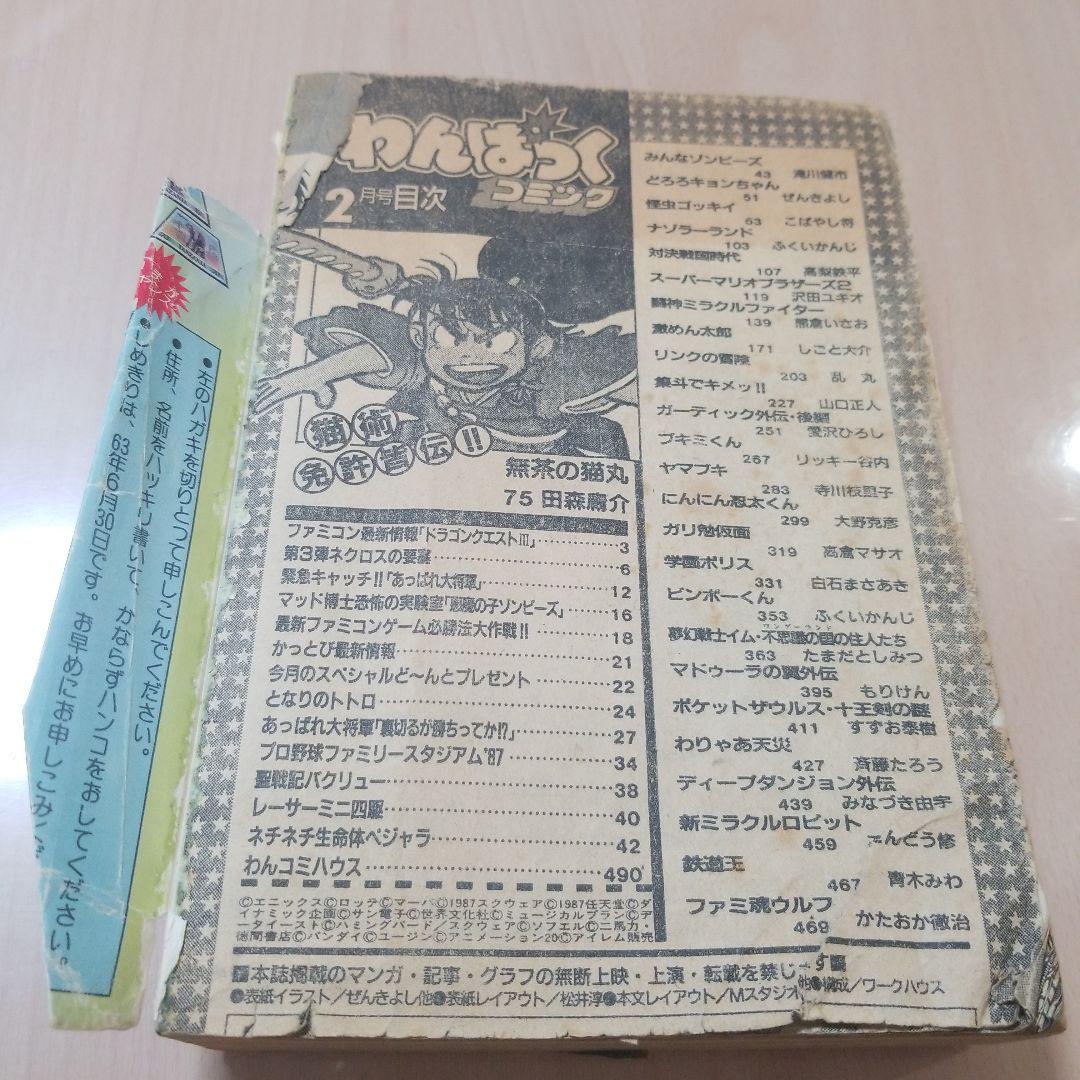 わんぱっく
コミック
2月号目次
猫術
免許皆伝!!
無茶の猫丸
75 田森庸介
ファミコン最新情報「ドラゴンクエストⅢ」…………3
第3弾ネクロスの要塞…………6
緊急キャッチ!!「あっぱれ大将軍」…………12
マッド博士恐怖の実験室「悪魔の子ゾンビーズ」……16
最新ファミコンゲーム必勝法大作戦!!…………18
かっとび最新情報…………21
今月のスペシャルど〜んとプレゼント…………22
となりのトトロ…………24
あっぱれ大将軍「裏切るが勝ちってか!?」…………27
プロ野球ファミリースタジアム'87…………34
聖戦記バクリュー…………38
レーサーミニ四駆…………40
ネチネチ生命体ベジャラ…………42
わんコミハウス…………490
©エニックス©ロッテ©マーバ©1987スクウェア©1987任天堂©ダ
イナミック企画©サン電子©世界文化社©ミュージカルプラン©デ
ータイースト©ハミングバード/スクウェア©ソフエル©二馬力・
徳間書店©バンダイ©ユージン©アニメーション20©アイレム販売
みんなゾンビーズ
43 滝川健市
どろろキョンちゃん
51 ぜんきよし
怪虫ゴッキイ
63 こばやし将
ナゾラーランド
103 ふくいかんじ
対決戦国時代
107 高梨鉄平
スーパーマリオブラザーズ2
119 沢田ユキオ
闘神ミラクルファイター
139 熊倉いさお
激めん太郎
171 しごと大介
リンクの冒険
203 乱丸
集斗でキメッ!!
227 山口正人
ガーディック外伝・後編
251 愛沢ひろし
ブキミくん
267 リッキー谷内
ヤマブキ
283 寺川枝里子
にんにん忍太くん
299 大野克彦
ガリ勉仮面
319 高倉マサオ
学園ポリス
331 白石まさあき
ビンボーくん
353 ふくいかんじ
夢幻戦士イム・不思議の国の住人たち
363 たまだとしみつ
マドゥーラの翼外伝
395 もりけん
ポケットザウルス・十王剣の謎
411 すずお泰樹
わりゃあ天災
427 斉藤たろう
ディープダンジョン外伝
439 みなづき由宇
新ミラクルロビット
459 んどう修
鉄道王
467 青木みわ
ファミ魂ウルフ
469 かたおか徹治
本誌掲載のマンガ・記事・グラフの無断上映・上演・転載を禁じます
●表紙イラスト/ぜんきよし他●表紙レイアウト/松井淳●本文レイアウト/Mスタジオ他●構成/ワークハウス
●左のハガキを切りとって申しこんでください。
●住所、名前をハッキリ書いて、かならずハンコをおしてください。
●しめきりは、63年6月30日です。お早めにお申しこみくだ